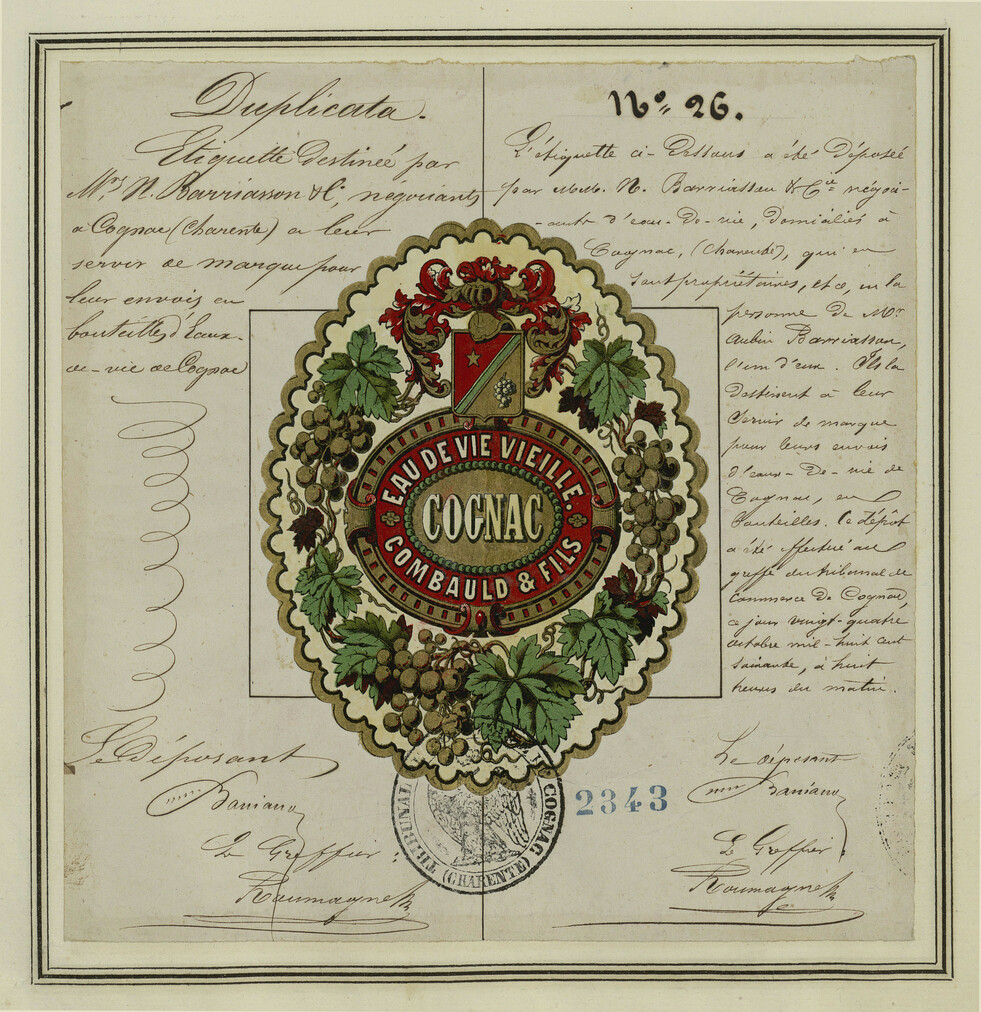 Duplicata.
Etiquette destinée par
Mrs N. Barriasson & Cie, negociants
a Cognac (Charente) a leur
servir de marque pour
leur envois en
bouteilles d'Eaux-
de-vie de Cognac
Le déposant
Le Greffier
Roumagne
No. 26.
L'étiquette ci-Dessous a été déposée
par M.M. N. Barriasson & Cie négoci-
-ants d'eau-De-vie, domiciliés à
Cognac, (Charente), qui en
sont propriétaires, et ce, en la
personne de Mr
Aubin Barriasson,
l'un d'eux. Ils la
destinent à leur
servir de marque
pour leurs envois
d'eaux-De-vie de
Cognac, en
bouteilles. Ce dépôt
a été effectué au
greffe du tribunal de
Commerce de Cognac,
ce jour vingt-quatre
octobre mil-huit cent
soixante, à huit
heures du matin.
Le déposant
Le Greffier
Roumagne
EAU DE VIE VIEILLE.
COGNAC
COMBAULD & FILS
TRIBUNAL
COGNAC
(CHARENTE)
2343